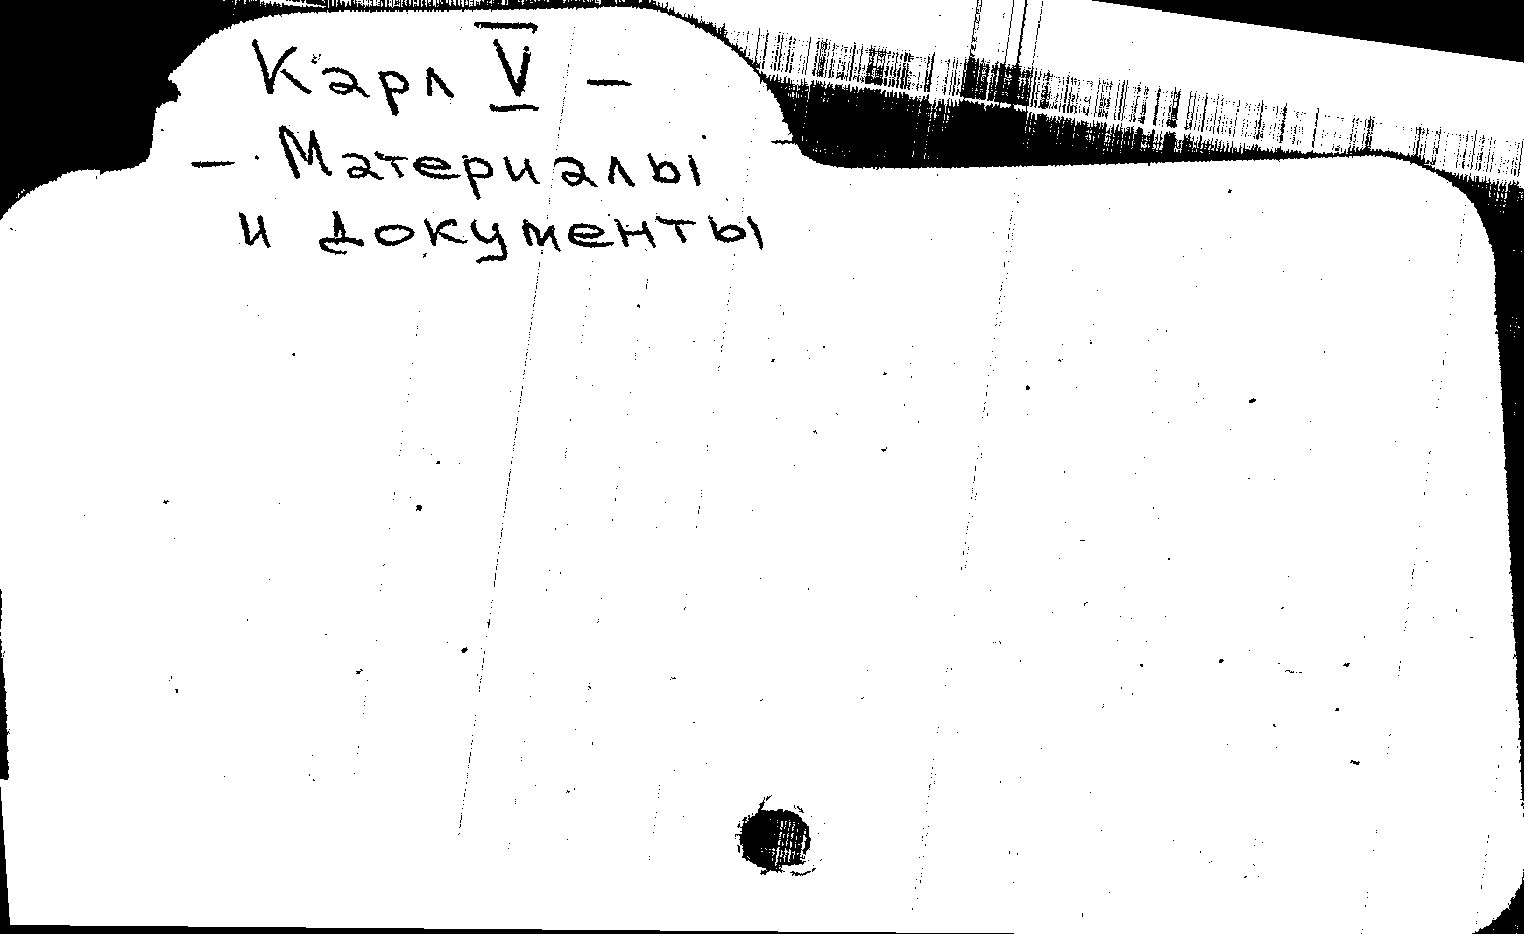 Карл V –
– Материалы
и документы